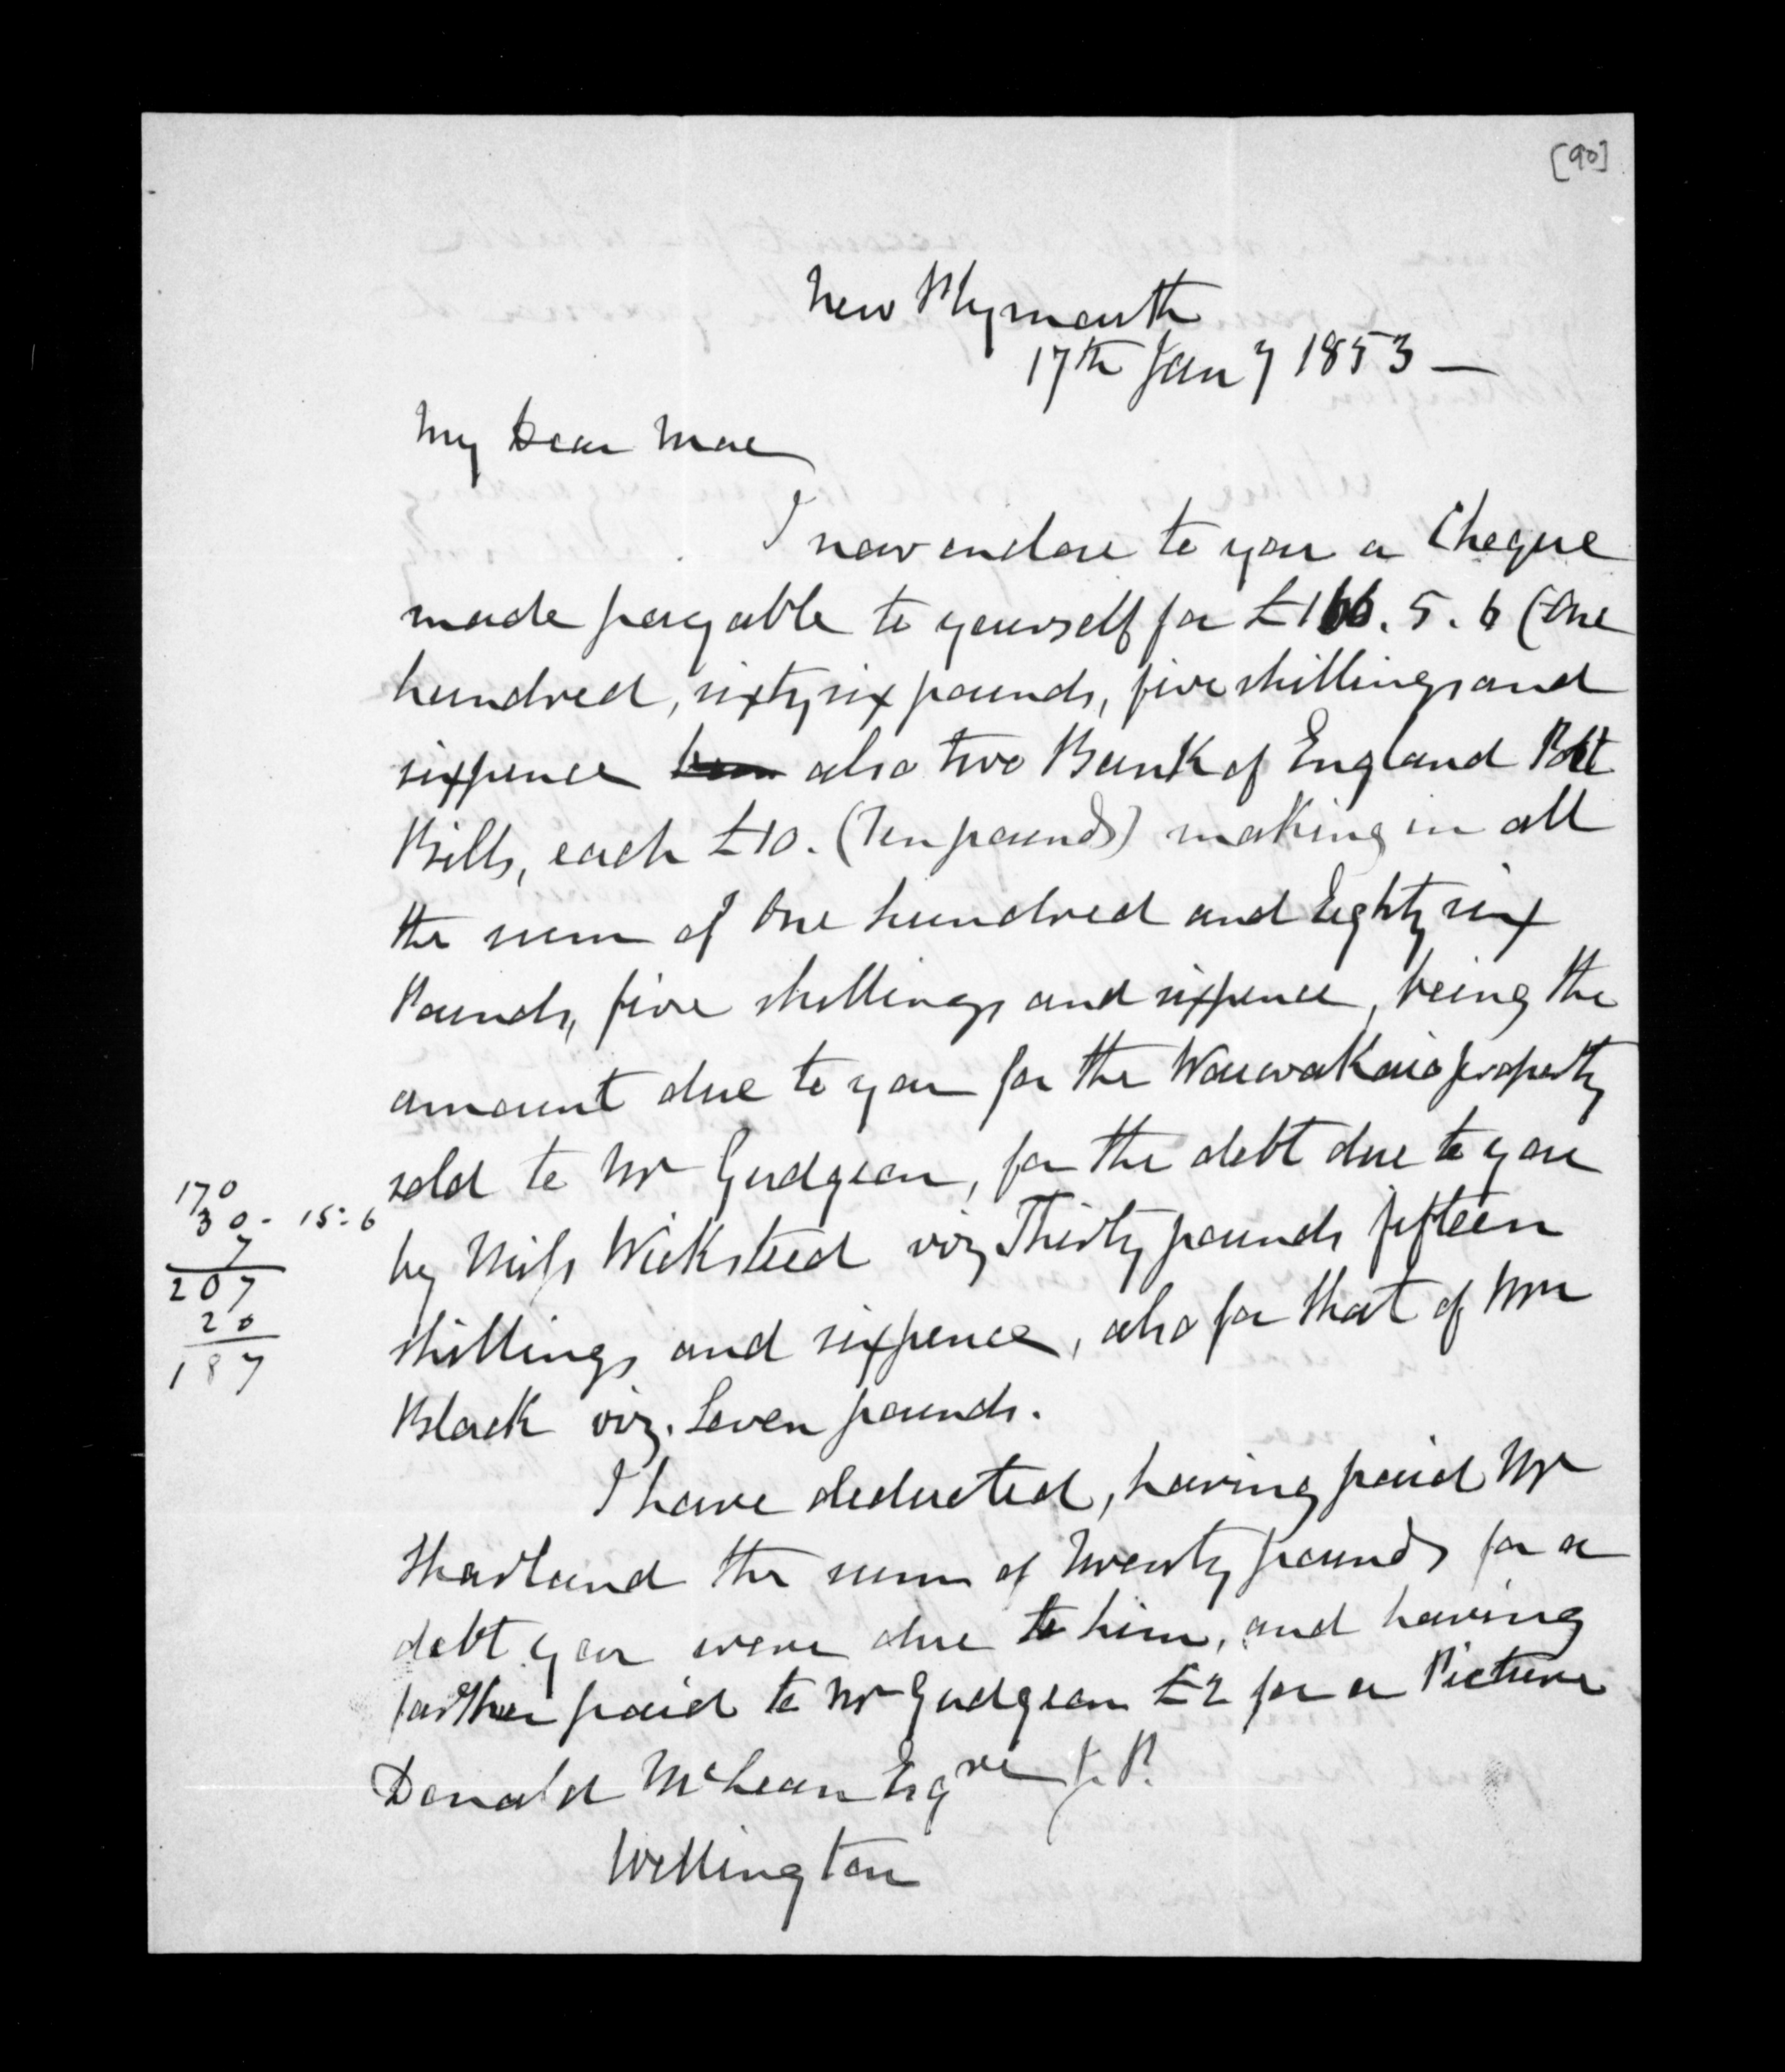 [90]
New Plymouth
17th Jany 1853 —
My Dear Mac
I now enclose to you a Cheque
made payable to yourself for £166. 5. 6 (One
hundred, sixty six pounds, five shillings and
sixpence also two Bank of England Post
Bills, each £10. (Ten pounds) making in all
the sum of One hundred and Eighty six
Pounds, five shillings and sixpence, being the
amount due to you for the Waiwakaio property
sold to Mr Gudgeon, for the debt due to you
170
30 - 15: 6
7
207
20
187
by Miss Wicksteed viz Thirty pounds fifteen
shillings and sixpence, also for that of Mr
Black viz. Seven pounds.
I have deducted, having paid Mr
Sharland the sum of Twenty pounds for a
debt you were due to him, and having
farther paid to Mr Gudgeon £2 for a Picture
Donald McLean Esqre J. P.
Wellington